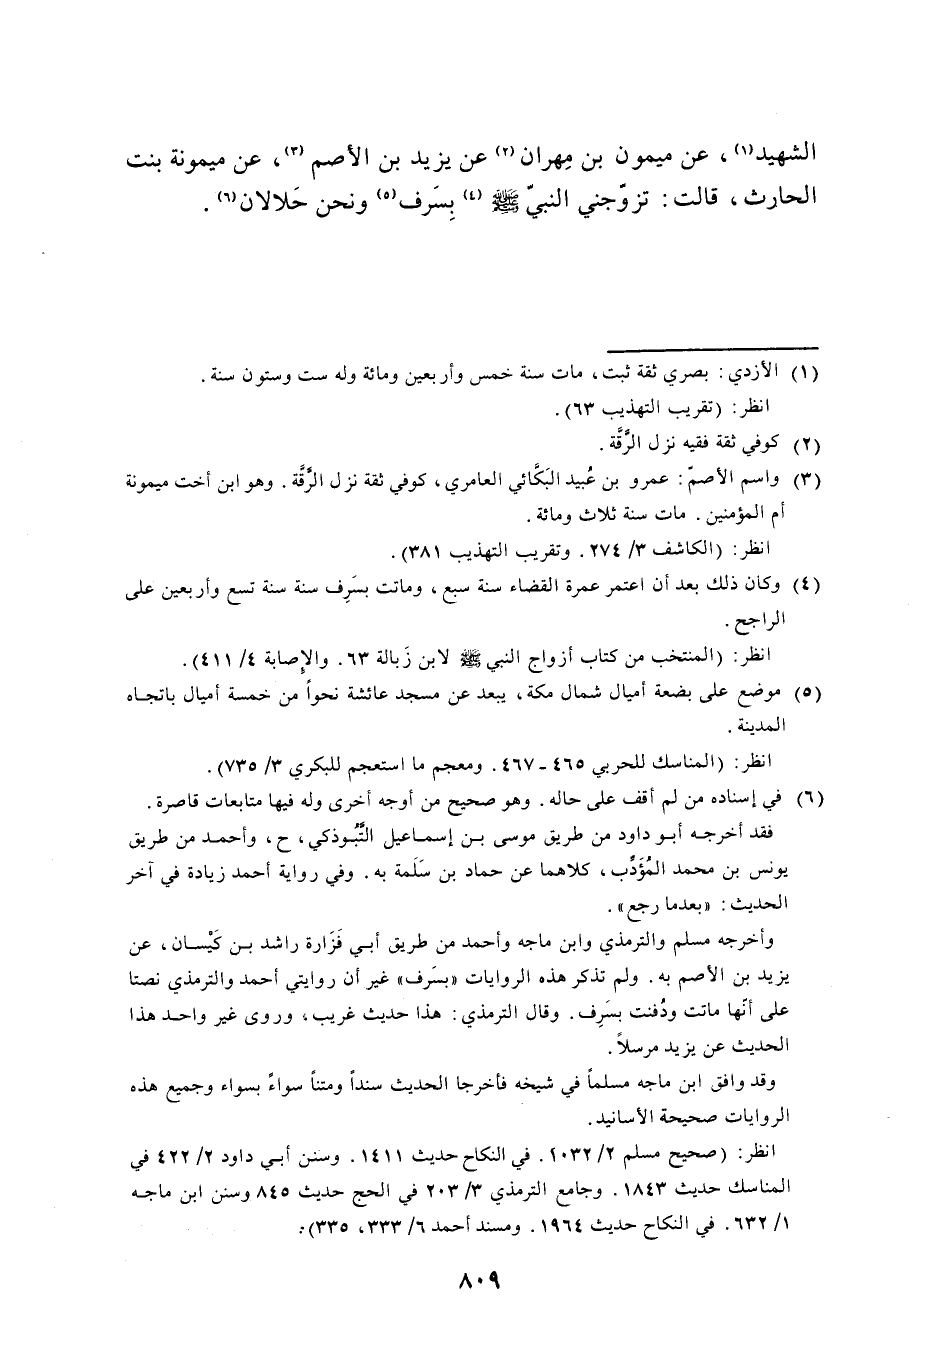 الشهيد(١) ، عن ميمون بن مِهران(٢) عن يزيد بن الأصم(٣) ، عن ميمونة بنت
الحارث ، قالت : تزوّجني النبيّ ﷺ (٤) بِسَرف(٥) ونحن حَلالان(٦) .
(١) الأزدي : بصري ثقة ثبت ، مات سنة خمس وأربعين ومائة وله ست وستون سنة .
انظر : (تقريب التهذيب ٦٣) .
(٢) كوفي ثقة فقيه نزل الرَّقَّة .
(٣) واسم الأصمّ : عمرو بن عُبيد البَكَّائي العامري ، كوفي ثقة نزل الرَّقَّة . وهو ابن أخت ميمونة
أم المؤمنين . مات سنة ثلاث ومائة .
انظر : (الكاشف ٣/ ٢٧٤ . وتقريب التهذيب ٣٨١) .
(٤) وكان ذلك بعد أن اعتمر عمرة القضاء سنة سبع ، وماتت بسَرِف سنة سنة تسع وأربعين على
الراجح .
انظر : (المنتخب من كتاب أزواج النبي ﷺ لابن زَبالة ٦٣ . والإصابة ٤/ ٤١١) .
(٥) موضع على بضعة أميال شمال مكة ، يبعد عن مسجد عائشة نحواً من خمسة أميال باتجاه
المدينة .
انظر : (المناسك للحربي ٤٦٥ - ٤٦٧ . ومعجم ما استعجم للبكري ٣/ ٧٣٥) .
(٦) في إسناده من لم أقف على حاله . وهو صحيح من أوجه أخرى وله فيها متابعات قاصرة .
فقد أخرجه أبو داود من طريق موسى بن إسماعيل التَّبُوذكي ، ح ، وأحمد من طريق
يونس بن محمد المُؤَدِّب ، كلاهما عن حماد بن سَلَمة به . وفي رواية أحمد زيادة في آخر
الحديث : «بعدما رجع» .
وأخرجه مسلم والترمذي وابن ماجه وأحمد من طريق أبي فَزَارة راشد بن كَيْسان ، عن
يزيد بن الأصم به . ولم تذكر هذه الروايات «بسَرف» غير أن روايتي أحمد والترمذي نصتا
على أنّها ماتت ودُفنت بسَرِف . وقال الترمذي : هذا حديث غريب ، وروى غير واحد هذا
الحديث عن يزيد مرسلاً .
وقد وافق ابن ماجه مسلماً في شيخه فأخرجا الحديث سنداً ومتناً سواءً بسواء وجميع هذه
الروايات صحيحة الأسانيد .
انظر : (صحيح مسلم ٢/ ١٠٣٢ . في النكاح حديث ١٤١١ . وسنن أبي داود ٢/ ٤٢٢ في
المناسك حديث ١٨٤٣ . وجامع الترمذي ٣/ ٢٠٣ في الحج حديث ٨٤٥ وسنن ابن ماجه
١/ ٦٣٢ . في النكاح حديث ١٩٦٤ . ومسند أحمد ٦/ ٣٣٣ ، ٣٣٥) .
٨٠٩